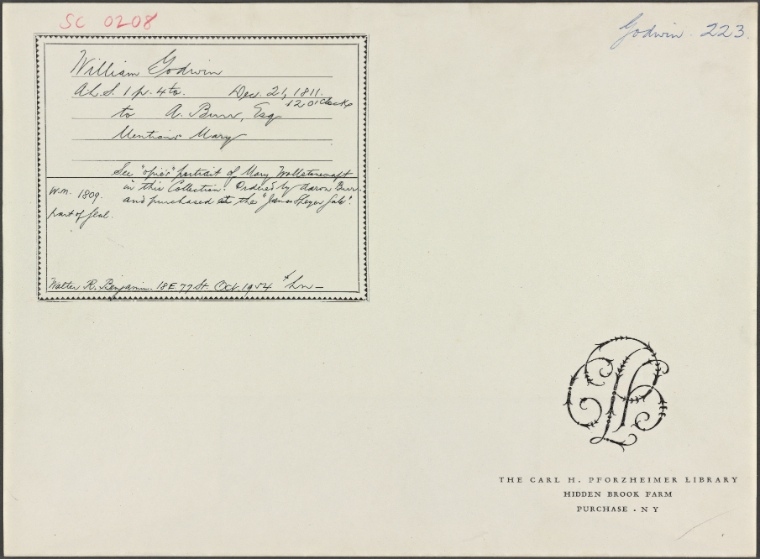 SC 0208
Godwin. 223.
William Godwin
A.L.S. 1 p. 4to. Dec. 21, 1811.
12 O'Clock
to A. Burr, Esq
Mentions Mary
See "Opie's" portrait of Mary Wollstonecraft
in this Collection. Ordered by Aaron Burr
and purchased at the "James Speyer Sale".
W.m. 1809.
part of seal.
Walter R. Benjamin 18 E 77 St. Oct 1954
THE CARL H. PFORZHEIMER LIBRARY
HIDDEN BROOK FARM
PURCHASE · N Y